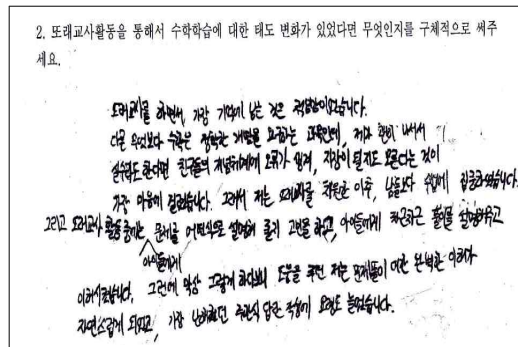 2. 또래교사활동을 통해서 수학학습에 대한 태도 변화가 있었다면 무엇인지를 구체적으로 써주
세요.
또래교사를 하면서, 가장 기억에 남는 것은 책임감이었습니다.
다른 무엇보다 수학은 정확한 개념을 요구하는 과목인데, 제가 한번 나서서
실수라도 한다면 친구들의 개념체계에 오류가 생겨, 지장이 될지도 모른다는 것이
가장 마음에 걸렸습니다. 그래서 저는 또래교사를 하게된 이후, 남들보다 수업에 집중하였습니다.
그리고 또래교사 활동 중에는 문제를 어떤식으로 설명해 줄지 고민을 하고, 아이들에게 차근차근 풀이를 설명해주고
아이들에게
이해시켰습니다. 그런데 막상 그렇게 하다보니 도움을 주던 저는 문제들에 대한 완벽한 이해가
자연스럽게 되었고, 가장 난해했던 주관식 답안 작성에 요령도 늘었습니다.